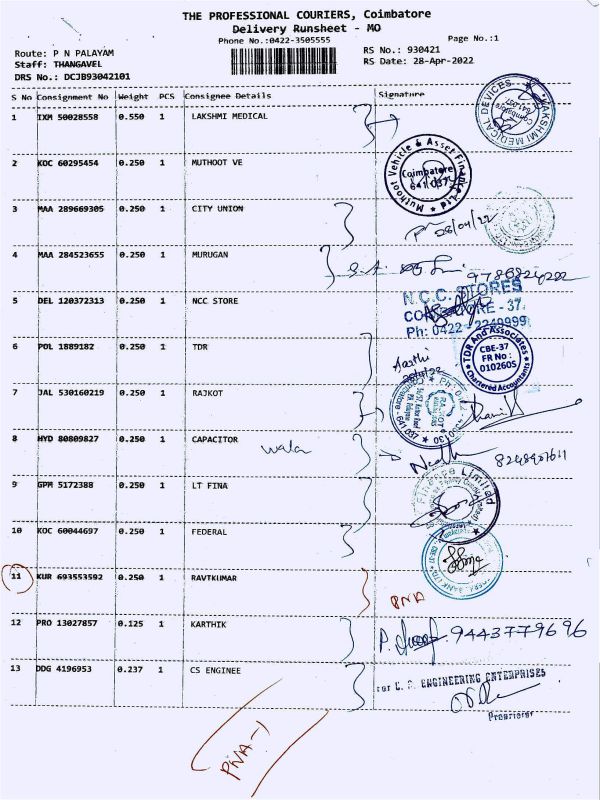 THE PROFESSIONAL COURIERS, Coimbatore
Delivery Runsheet - MO
Phone No.:0422-3505555
Page No.:1
Route: P N PALAYAM
RS No.: 930421
Staff: THANGAVEL
RS Date: 28-Apr-2022
DRS No.: DCJB93042101
S No Consignment No Weight PCS Consignee Details Signature
1 IXM 50028558 0.550 1 LAKSHMI MEDICAL
LAKSHMI MEDICAL DEVICES
Coimbatore
641 037
2 KOC 60295454 0.250 1 MUTHOOT VE
Muthoot Vehicle & Asset Finance Ltd
Coimbatore
641 037
3 MAA 289669305 0.250 1 CITY UNION
28/04/22
4 MAA 284523655 0.250 1 MURUGAN
5 DEL 120372313 0.250 1 NCC STORE
N.C.C. STORES
COIMBATORE - 37
Ph: 0422 - 2240999
6 POL 1889182 0.250 1 TDR
TDR And Associates
CBE-37
FR No :
010260S
Chartered Accountants
Aarthi
7 JAL 530160219 0.250 1 RAJKOT
RAJKOT
641 037
8 HYD 80809827 0.250 1 CAPACITOR wala
9 GPM 5172388 0.250 1 LT FINA
Finance Limited
10 KOC 60044697 0.250 1 FEDERAL
11 KUR 693553592 0.250 1 RAVTKUMAR
PNA
12 PRO 13027857 0.125 1 KARTHIK
9443779696
13 DDG 4196953 0.237 1 CS ENGINEE
For C. S. ENGINEERING ENTERPRISES
Proprietor
PNA-1